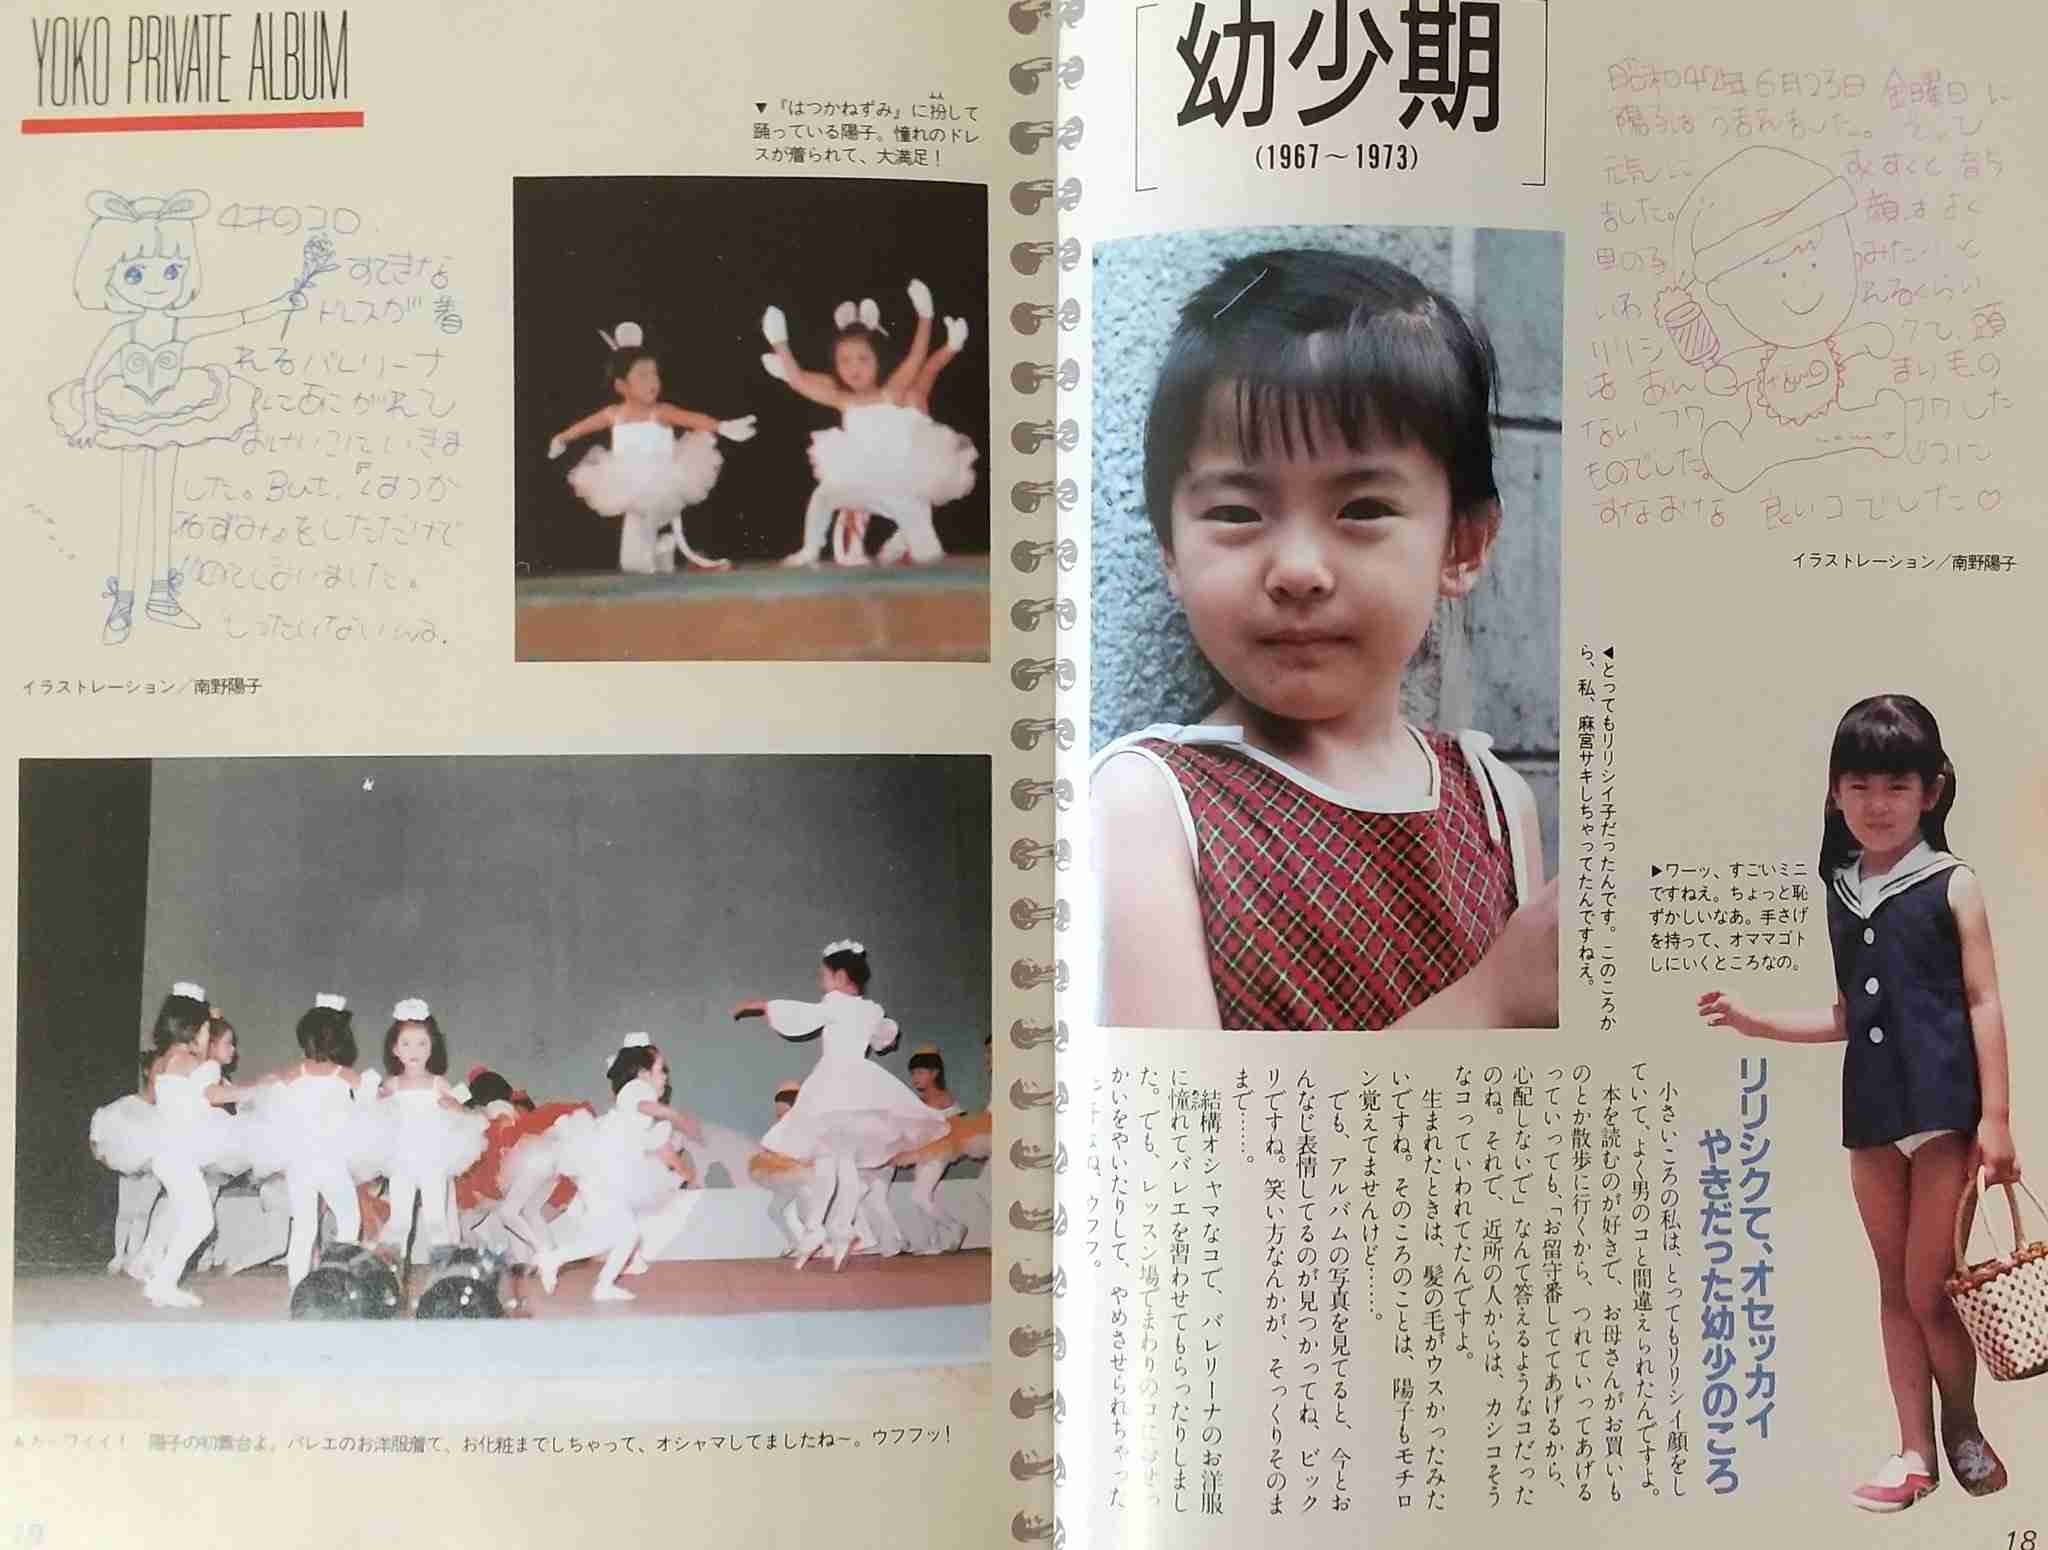 幼少期
(1967〜1973)
昭和42年6月23日 金曜日に
陽子はうまれました。とっても
元気に すくすくと育ち
ました。 顔はよく
男の子 みたいと
いわ れるくらい
リリシ クて、頭
は あん まり毛の
ない フワ フワした
ものでした。 じつに
すなおな 良いコでした♡
イラストレーション／南野陽子
◀とってもリリシイ子だったんです。このころか
ら、私、麻宮サキしちゃってたんですねえ。
▶ワーッ、すごいミニ
ですねえ。ちょっと恥
ずかしいなあ。手さげ
を持って、オママゴト
しにいくところなの。
リリシクて、オセッカイ
やきだった幼少のころ
小さいころの私は、とってもリリシイ顔をし
ていて、よく男のコと間違えられたんですよ。
本を読むのが好きで、お母さんがお買いも
のとか散歩に行くから、つれていってあげる
っていっても、「お留守番しててあげるから、
心配しないで」なんて答えるようなコだった
のね。それで、近所の人からは、カシコそう
なコっていわれてたんですよ。
生まれたときは、髪の毛がウスかったみた
いですね。そのころのことは、陽子もモチロ
ン覚えてませんけど……。
でも、アルバムの写真を見てると、今とお
んなじ表情してるのが見つかってね、ビック
リですね。笑い方なんかが、そっくりそのま
まで……。
結構オシャマなコで、バレリーナのお洋服
に憧れてバレエを習わせてもらったりしまし
た。でも、レッスン場でまわりのコにおせっ
かいをやいたりして、やめさせられちゃった
んですよね、ウフフ。
18
YOKO PRIVATE ALBUM
▼『はつかねずみ』に扮して
踊っている陽子。憧れのドレ
スが着られて、大満足！
4才のコロ
すてきな
ドレスが着
れるバレリーナ
にあこがれて
おけいこにいきま
した。But、『はつか
ねずみ』をしただけで
イラストレーション／南野陽子
▲カーワイイ！ 陽子の初舞台よ。バレエのお洋服着て、お化粧までしちゃって、オシャマしてましたね〜。ウフフッ！
19